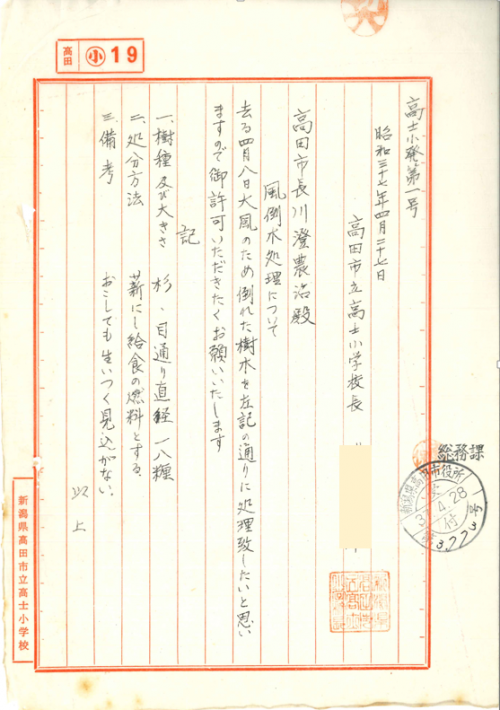 高田 小 19
高士小発第一号
昭和三十七年四月二十七日
高田市立高士小学校長
高田市長川澄農治殿
風倒木処理について
去る四月八日大風のため倒れた樹木を左記の通りに処理致したいと思い
ますので御許可いただきたくお願いいたします
記
一、樹種及び大きさ 杉、目通り直径一八糎
二、処分方法 薪にし給食の燃料とする、
三、備考 おこしても生いつく見込がない、
以上
総務課
新潟県高田市役所
37.4.28
受付
第3773号
新潟県高田市立高士小学校